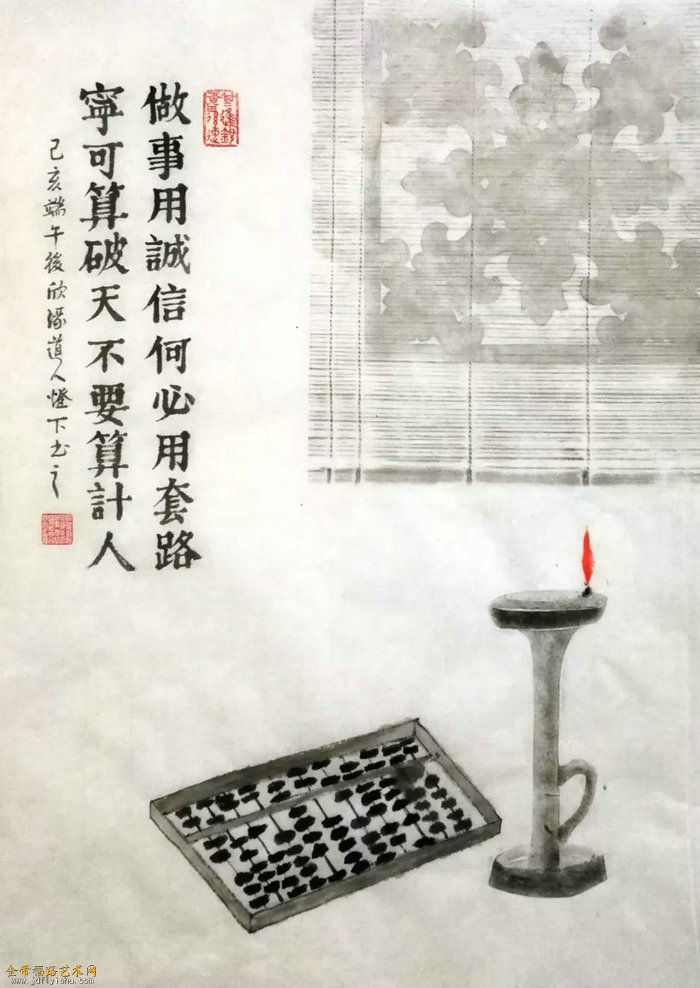 做事用誠信何必用套路
寧可算破天不要算計人
己亥端午後欣緣道人燈下书之
金带福路艺术网
www.jdflyishu.com